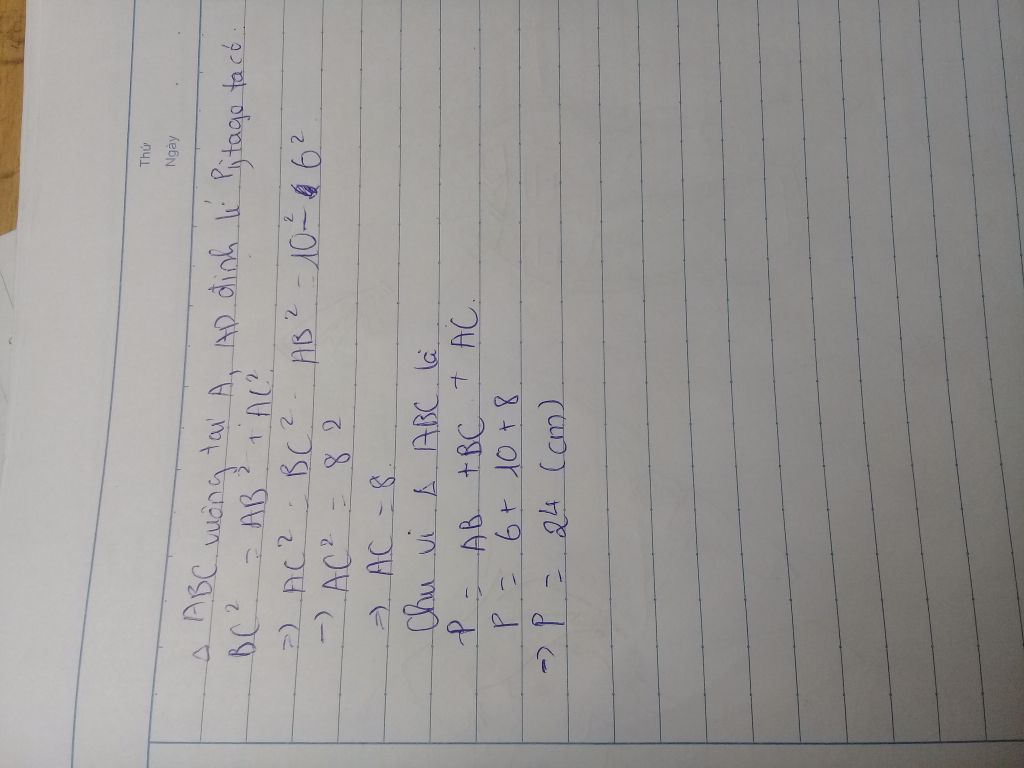 Thứ
Ngày
Δ ABC vuông tại A, AD định lí Pytago ta có.
BC² = AB² + AC²
=> AC² = BC² - AB² = 10² - 6²
-> AC² = 8²
=> AC = 8.
Chu vi Δ ABC là
P = AB + BC + AC.
P = 6 + 10 + 8
-> P = 24 (cm)